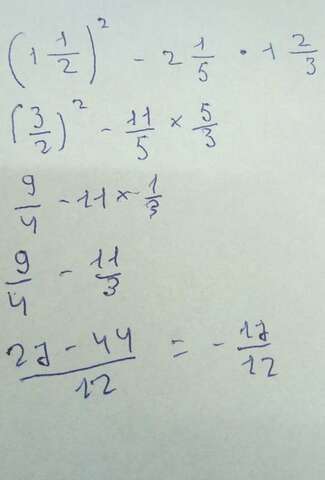 (1 1/2)² - 2 1/5 · 1 2/3
(3/2)² - 11/5 × 5/3
9/4 - 11 × 1/3
9/4 - 11/3
27 - 44/12 = - 17/12